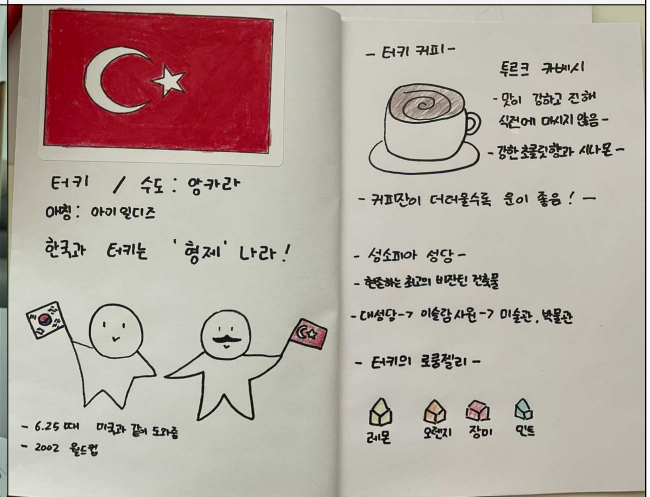 터키 / 수도 : 앙카라
애칭 : 아이 일디즈
한국과 터키는 '형제' 나라!
- 6.25 때 미국과 같이 도와줌
- 2002 월드컵
- 터키 커피 -
투르크 카베시
- 맛이 강하고 진해
식전에 마시지 않음 -
- 강한 초콜릿향과 시나몬 -
- 커피잔이 더러울수록 운이 좋음! -
- 성소피아 성당 -
- 현존하는 최고의 비잔틴 건축물
- 대성당-> 이슬람사원-> 미술관, 박물관
- 터키의 로쿰젤리 -
레몬 오렌지 장미 민트